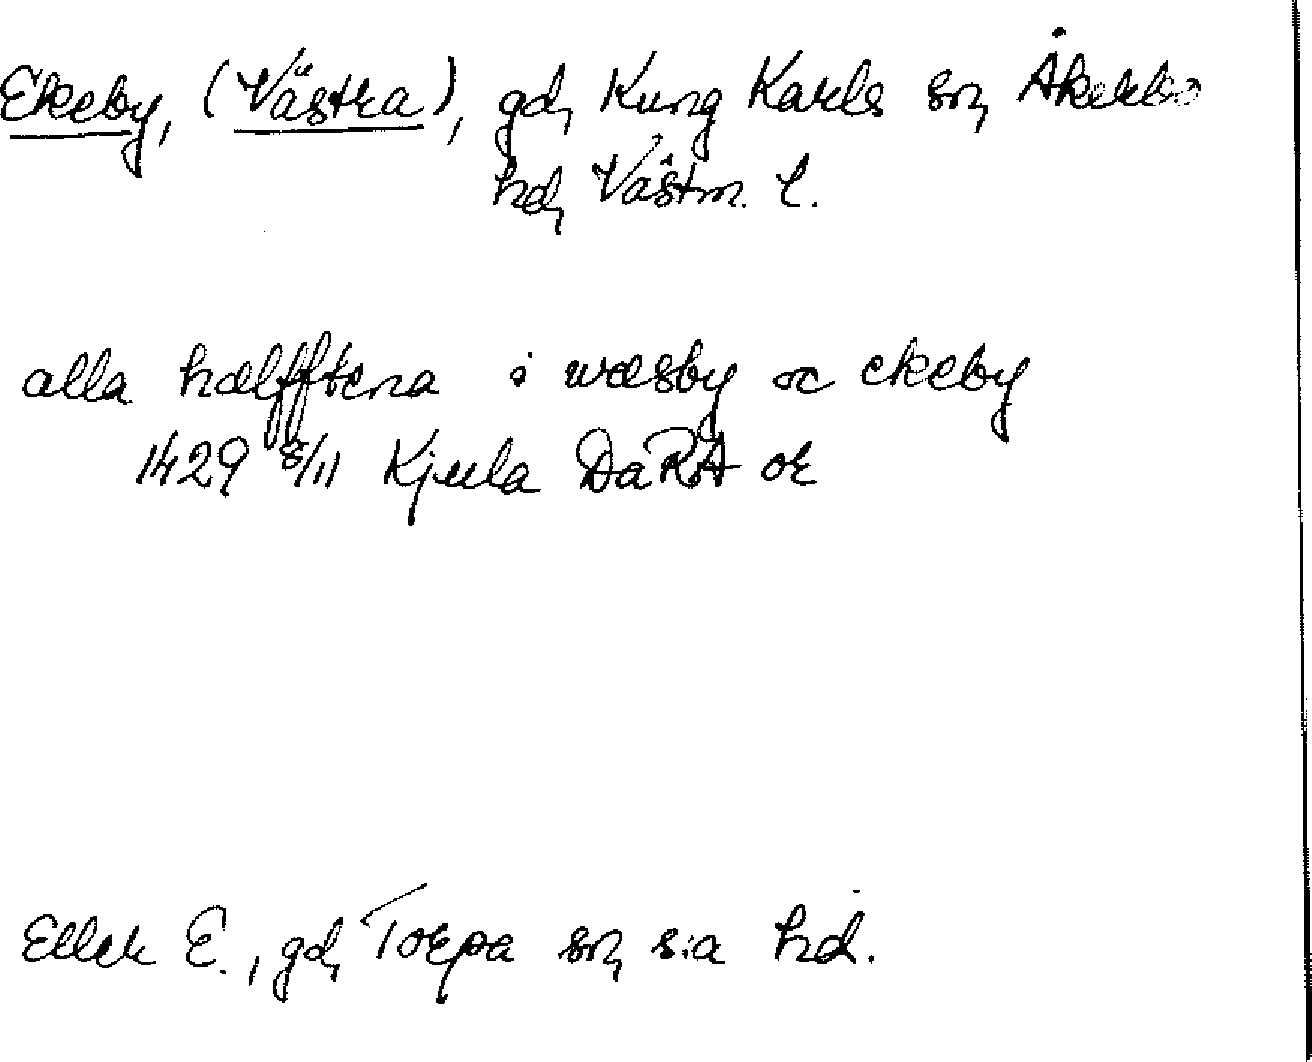 Ekeby, (Västra), gd, Kung Karls sn, Åkerbo
hd, Västm. l.
alla hælfftena i wæsby oc ekeby
1429 8/11 Kjula DaRA or
Eller E., gd, Torpa sn, s:a hd.